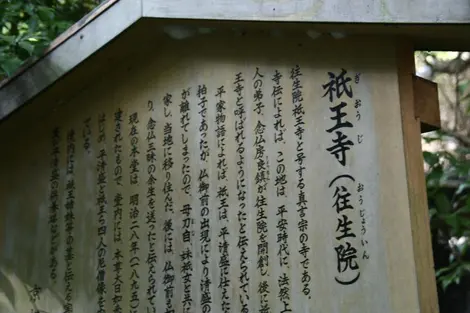 祇王寺(往生院)
ぎおうじ
おうじょういん
往生院祇王寺と号する真言宗の寺である。
寺伝によれば、この地は、平安時代に、法然上
人の弟子、念仏房良鎮が往生院を開創し、後に祇
王寺と呼ばれるようになったと伝えられている
平家物語によれば、祇王は、平清盛に仕えた
拍子であったが、仏御前の出現により清盛の
が離れてしまったので、母刀自、妹祇女と共に
家し、当地に移り住んだ。後には、仏御前も
り、念仏三昧の余生を送ったと伝えられてい
現在の本堂は、明治二八年(一八九五)
建されたもので、堂内には、本尊大日如
はじめ、平清盛と祇王ら四人の尼僧像を安
ている。
境内には、祇王姉妹等の墓と伝える宝
と平清盛の供養塔などがある。
京